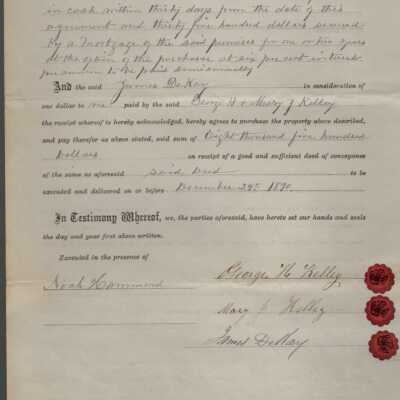 in cash within thirty days from the date of this
agreement and thirty five hundred dollars secured
by a mortgage of the said premises for one or two years
at the option of the purchaser at six per cent interest
per annum to be paid semiannually
And the said James DeKay in consideration
one dollar to me paid by the said George H & Mary J Kelley
the receipt whereof is hereby acknowledged, hereby agrees to purchase the property above described,
and pay therefor as above stated, said sum of Eight thousand five hundred
Dollars on receipt of a good and sufficient deed of conveyance
of the same as aforesaid said Deed to be
executed and delivered on or before December 29th 1890.
In Testimony Whereof, we, the parties aforesaid, have hereto set our hands and seals
the day and year first above written.
Executed in the presence of
George H Kelley
Noah Hammond
Mary J Kelley
James DeKay